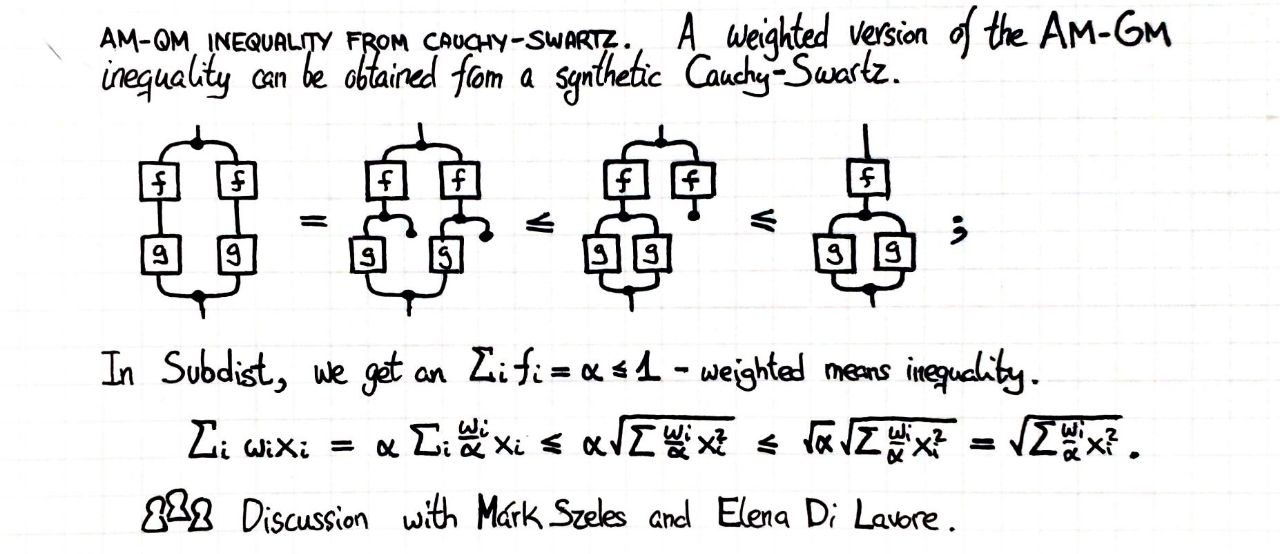 AM-QM INEQUALITY FROM CAUCHY-SWARTZ. A weighted version of the AM-GM
inequality can be obtained from a synthetic Cauchy-Swartz.
f f f f f f f
= ≤ ≤ ;
g g g g g g g g
In Subdist, we get an Σi fi = α ≤ 1 - weighted means inequality.
Σi wixi = α Σi wi/α xi ≤ α√Σ wi/α xi² ≤ √α √Σ wi/α xi² = √Σ wi/α xi².
Discussion with Márk Szeles and Elena Di Lavore.